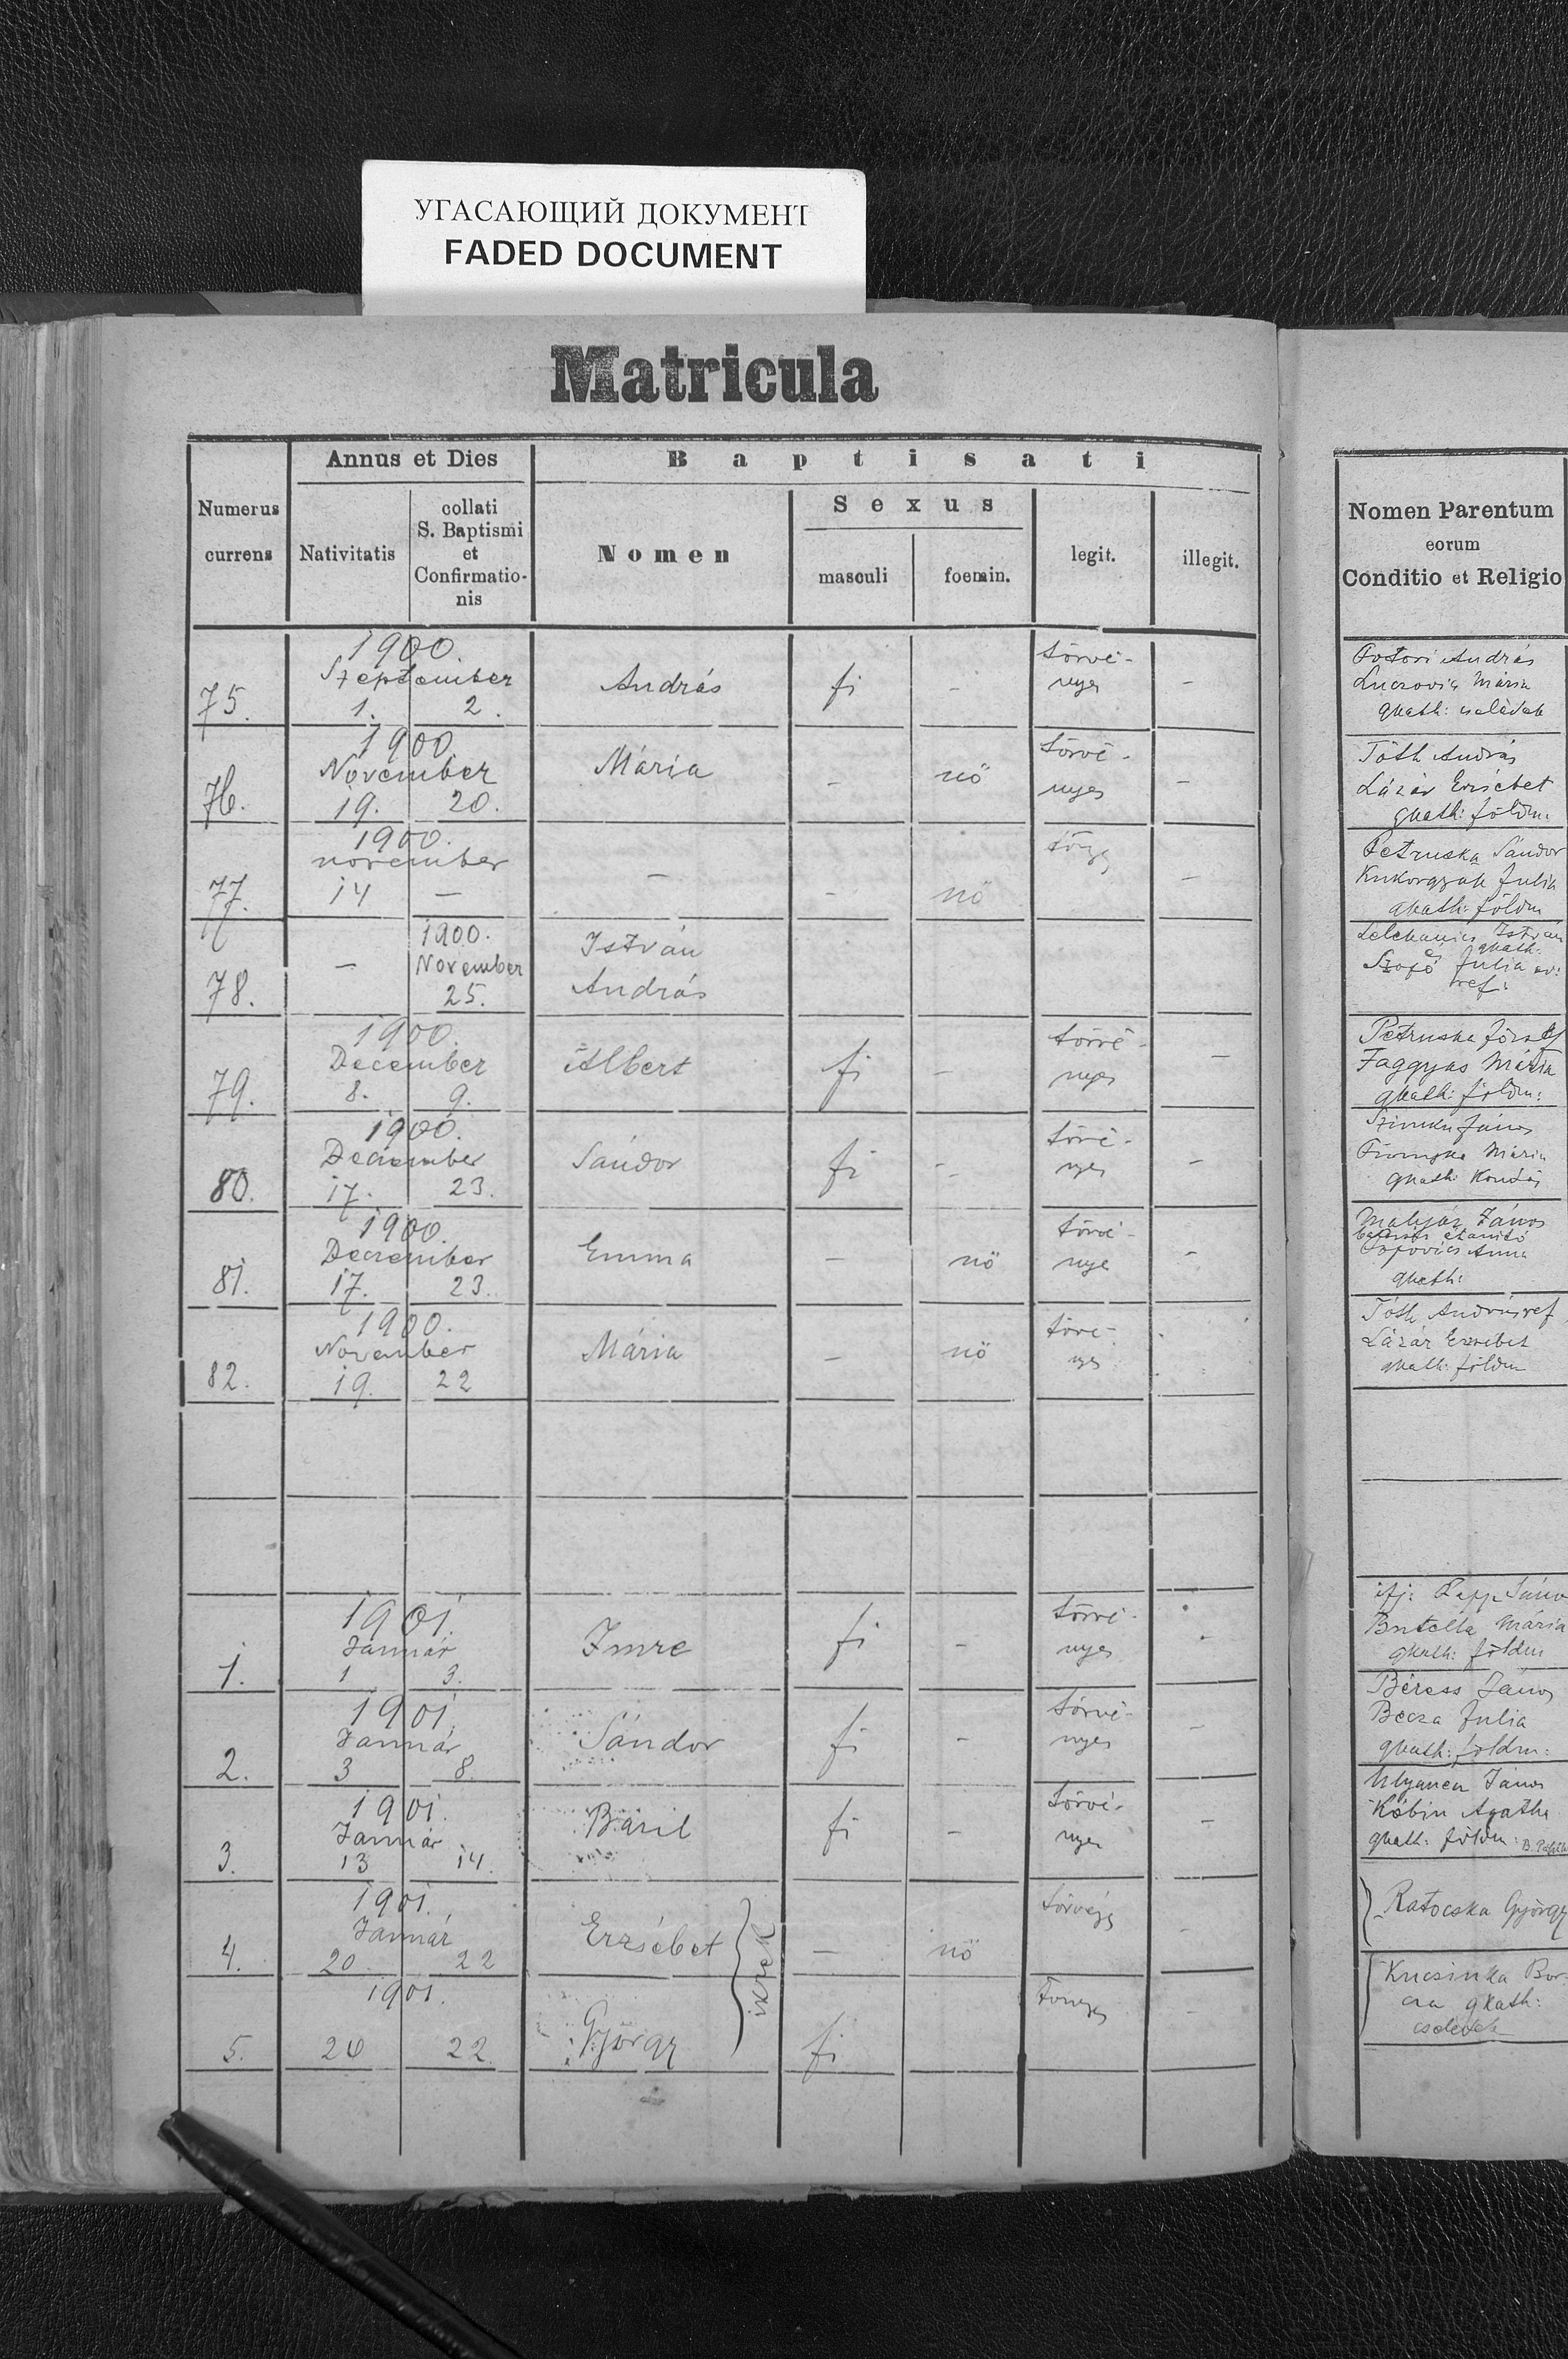 УГАСАЮЩИЙ ДОКУМЕНТ
FADED DOCUMENT
Matricula
Numerus
currens
Annus et Dies
Nativitatis
collati
S. Baptismi
et
Confirmatio-
nis
Baptisati
Nomen
Sexus
masculi
foemin.
legit.
illegit.
Nomen Parentum
eorum
Conditio et Religio
75.
1900.
Szeptember
1. 2.
András
fi
-
törvé-
nyes
-
András
Mária
gkath: cselédek
76.
1900.
November
19. 20.
Mária
-
nö
törvé-
nyes
-
Tóth András
Lázár Erzsébet
gkath: földm:
77.
1900.
november
14 -
-
-
nö
-
Petruska Sándor
Julia
gkath: földm
78.
-
1900.
November
25.
István
András
István
gkath.
Julia
ref:
79.
1900.
December
8. 9.
Albert
fi
-
törvé-
nyes
-
Petruska József
Faggyas Mária
gkath: földm:
80.
1900.
December
17. 23.
Sándor
fi
-
törvé-
nyes
-
János
Mária
gkath:
81.
1900.
December
17. 23.
Emma
-
nö
törvé-
nye
-
János
Popovics Anna
gkath:
82.
1900.
November
19. 22
Mária
-
nö
Tóth András ref
Lázár Erzsébet
gkath: földm
1.
1901.
Január
1 3.
Imre
fi
-
törvé-
nyes
-
ifj: Papp
Butella Mária
gkath: földm
2.
1901.
Január
3 8.
Sándor
fi
-
törvé-
nyes
-
Béress János
Becza Julia
gkath: földm:
3.
1901.
Január
13 14.
Bazil
fi
-
törvé-
nyes
-
János
Kóbin Agatha
gkath: földm:
4.
1901.
Január
20 22
Erzsébet
ikrek
-
nö
-
Ratocska György
5.
1901.
20 22
György
fi
-
Kucsinka Bor-
ca gkath:
cselédek